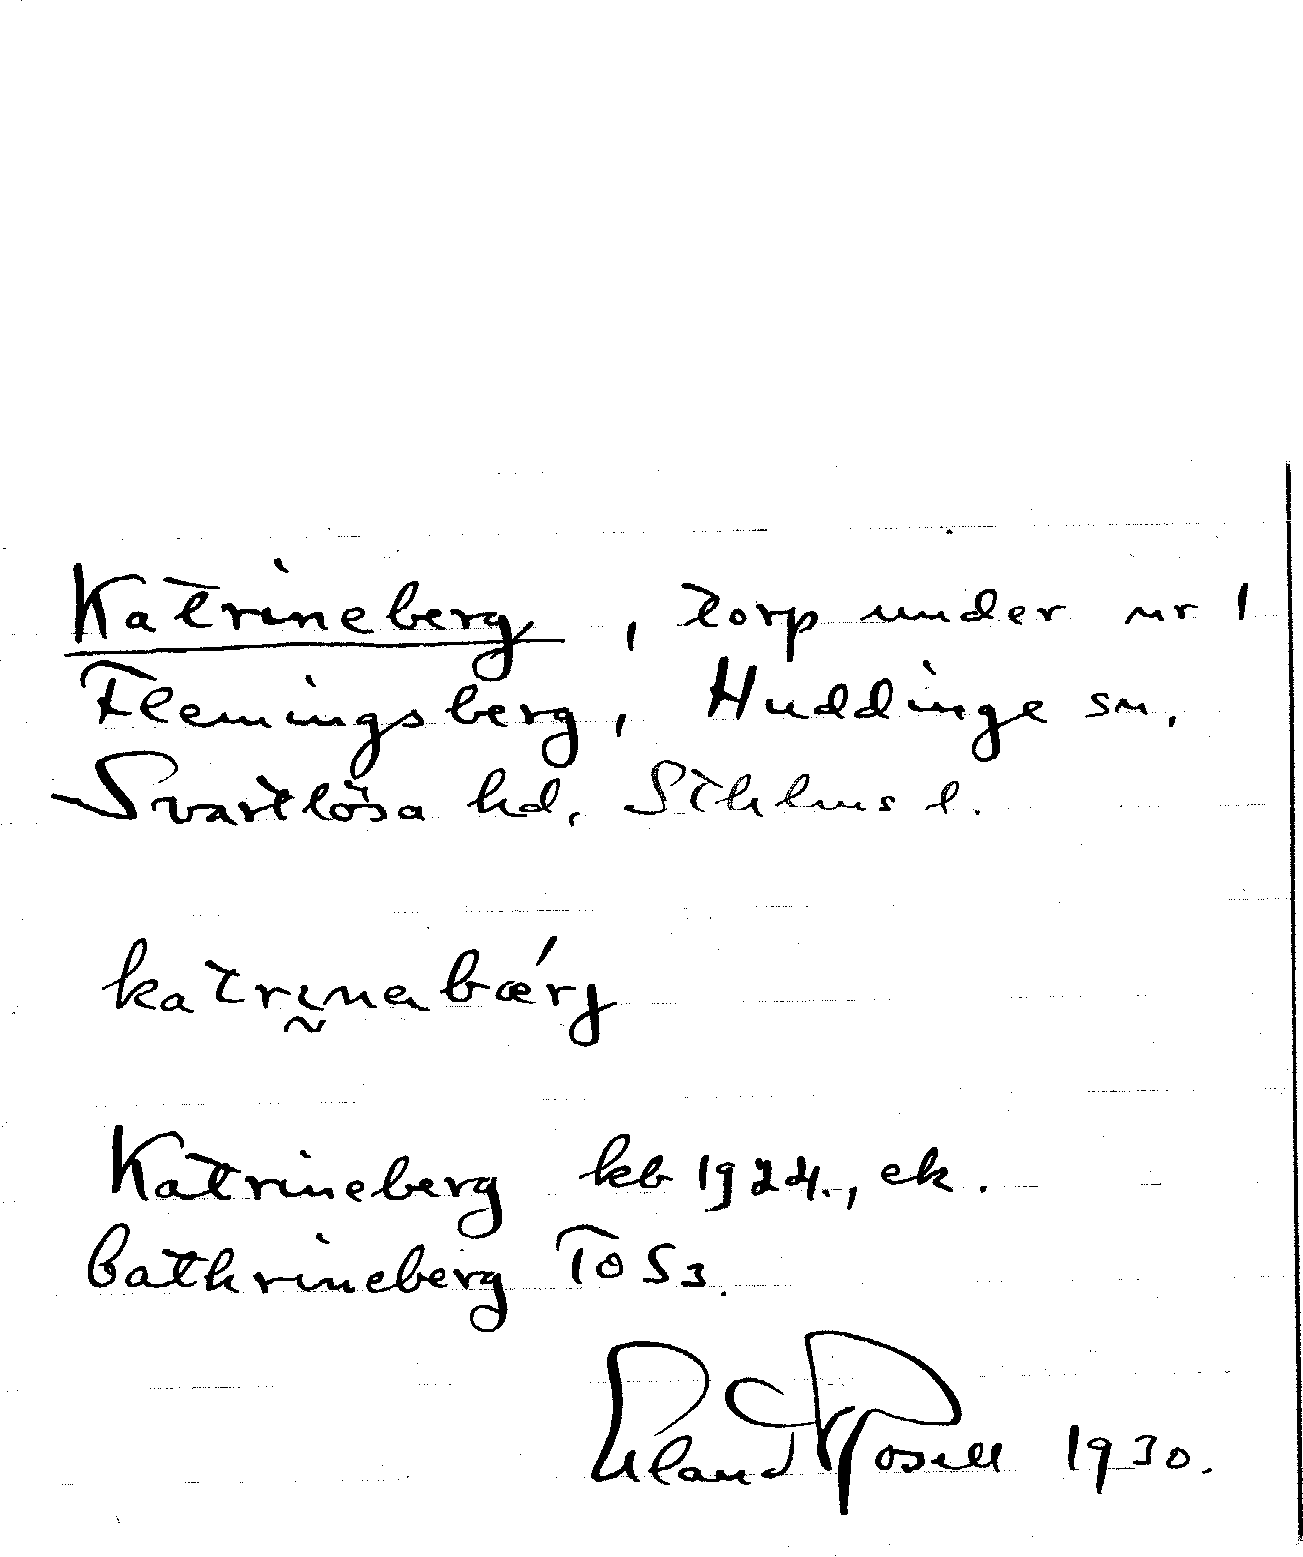 Katrineberg, torp under nr 1
Flemingsberg, Huddinge sn,
Svartlösa hd, Sthlms l.
katrinabærj
Katrineberg kb 1924., ek.
Cathrineberg To S3.
Erland Rosell 1930.